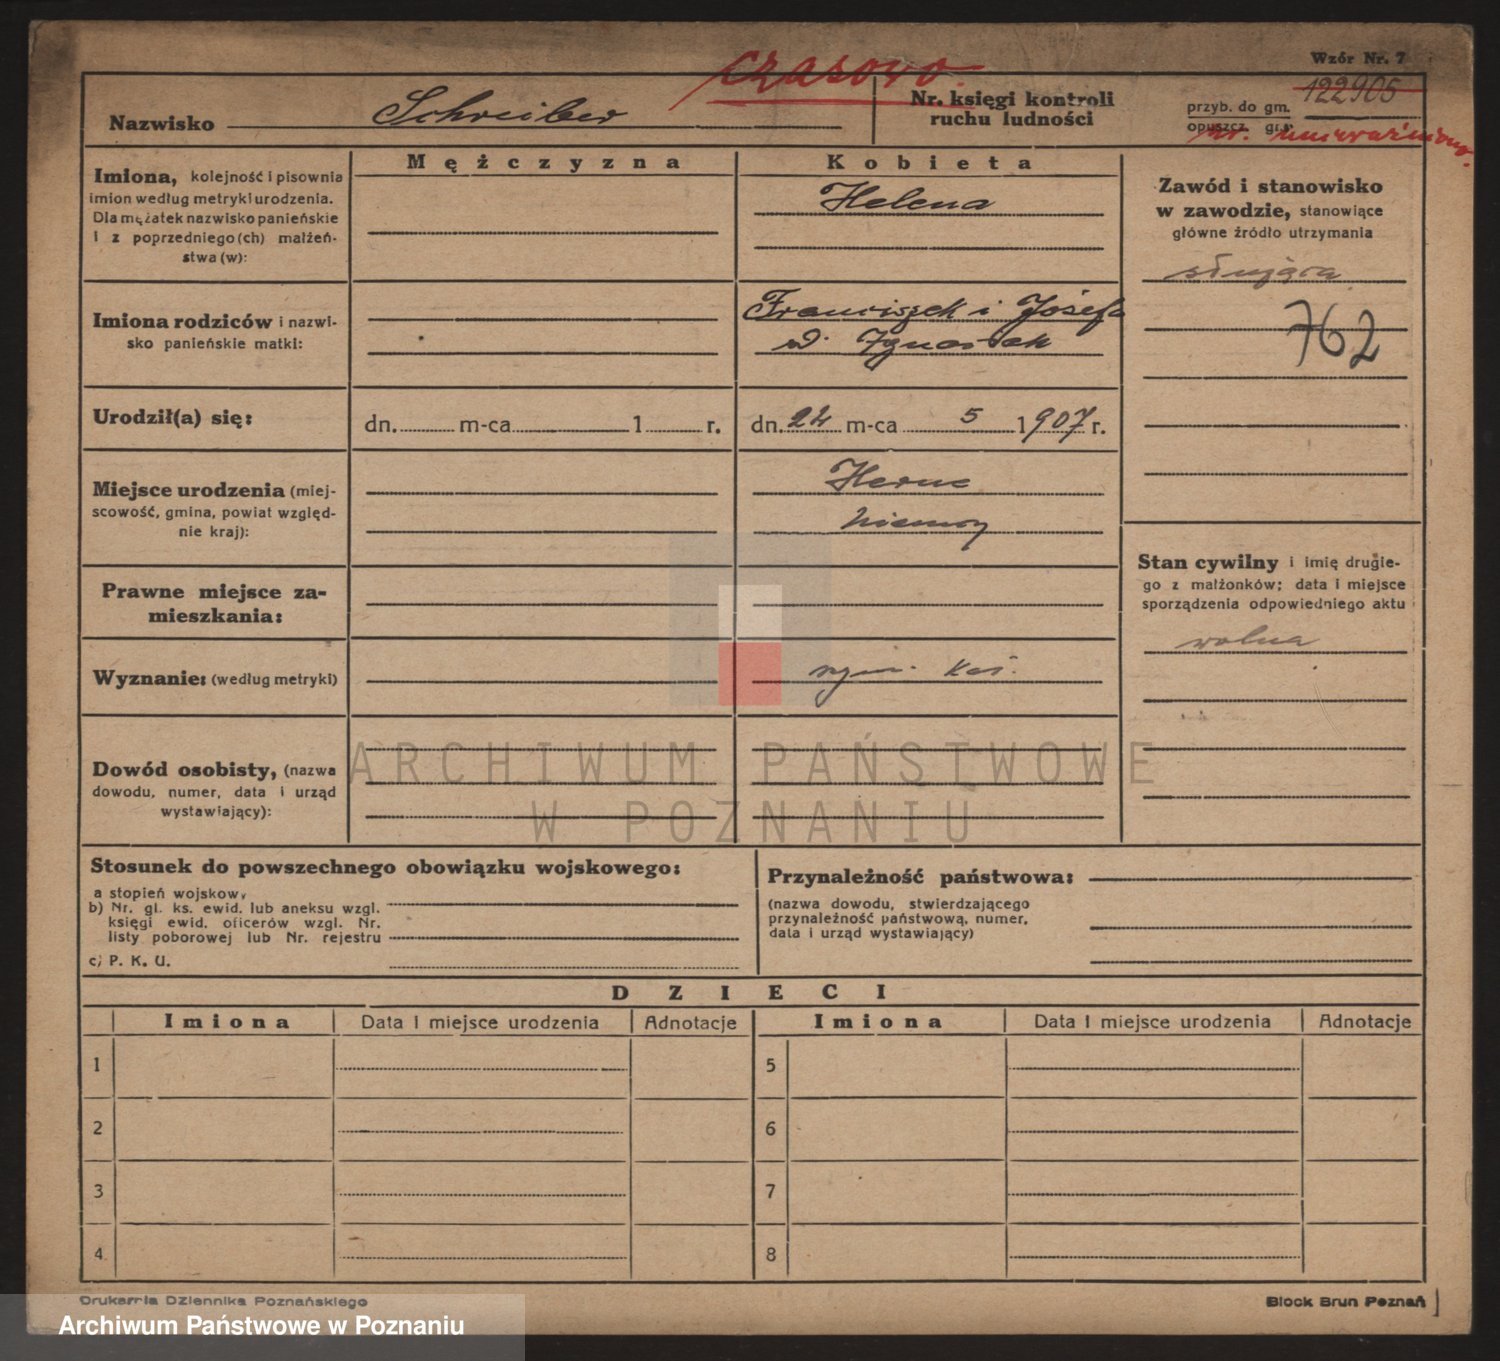 Wzór Nr. 7
czasowo
Nazwisko Schreiber
Nr. księgi kontroli
ruchu ludności
przyb. do gm. 122905
opuszcz. gm.
nr. unieważniony.
Mężczyzna
Kobieta
Imiona, kolejność i pisownia
imion według metryki urodzenia.
Dla mężatek nazwisko panieńskie
i z poprzedniego(ch) małżeń-
stwa(w):
Helena
Zawód i stanowisko
w zawodzie, stanowiące
główne źródło utrzymania
służąca
762
Imiona rodziców i nazwi-
sko panieńskie matki:
Franciszek i Józefa
d. Ignasiak
Urodził(a) się:
dn. m-ca 1 r.
dn. 24 m-ca 5 1907 r.
Miejsce urodzenia (miej-
scowość, gmina, powiat względ-
nie kraj):
Herne
Niemcy
Stan cywilny i imię drugie-
go z małżonków; data i miejsce
sporządzenia odpowiedniego aktu
wolna
Prawne miejsce za-
mieszkania:
Wyznanie: (według metryki)
rzym. kat.
Dowód osobisty, (nazwa
dowodu, numer, data i urząd
wystawiający):
ARCHIWUM PAŃSTWOWE
W POZNANIU
Stosunek do powszechnego obowiązku wojskowego:
a stopień wojskowy
b) Nr. gł. ks. ewid. lub aneksu wzgl.
księgi ewid. oficerów wzgl. Nr.
listy poborowej lub Nr. rejestru
c) P. K. U.
Przynależność państwowa:
(nazwa dowodu, stwierdzającego
przynależność państwową, numer,
data i urząd wystawiający)
DZIECI
Imiona Data i miejsce urodzenia Adnotacje Imiona Data i miejsce urodzenia Adnotacje
1 5
2 6
3 7
4 8
Drukarnia Dziennika Poznańskiego
Block Brun Poznań
Archiwum Państwowe w Poznaniu